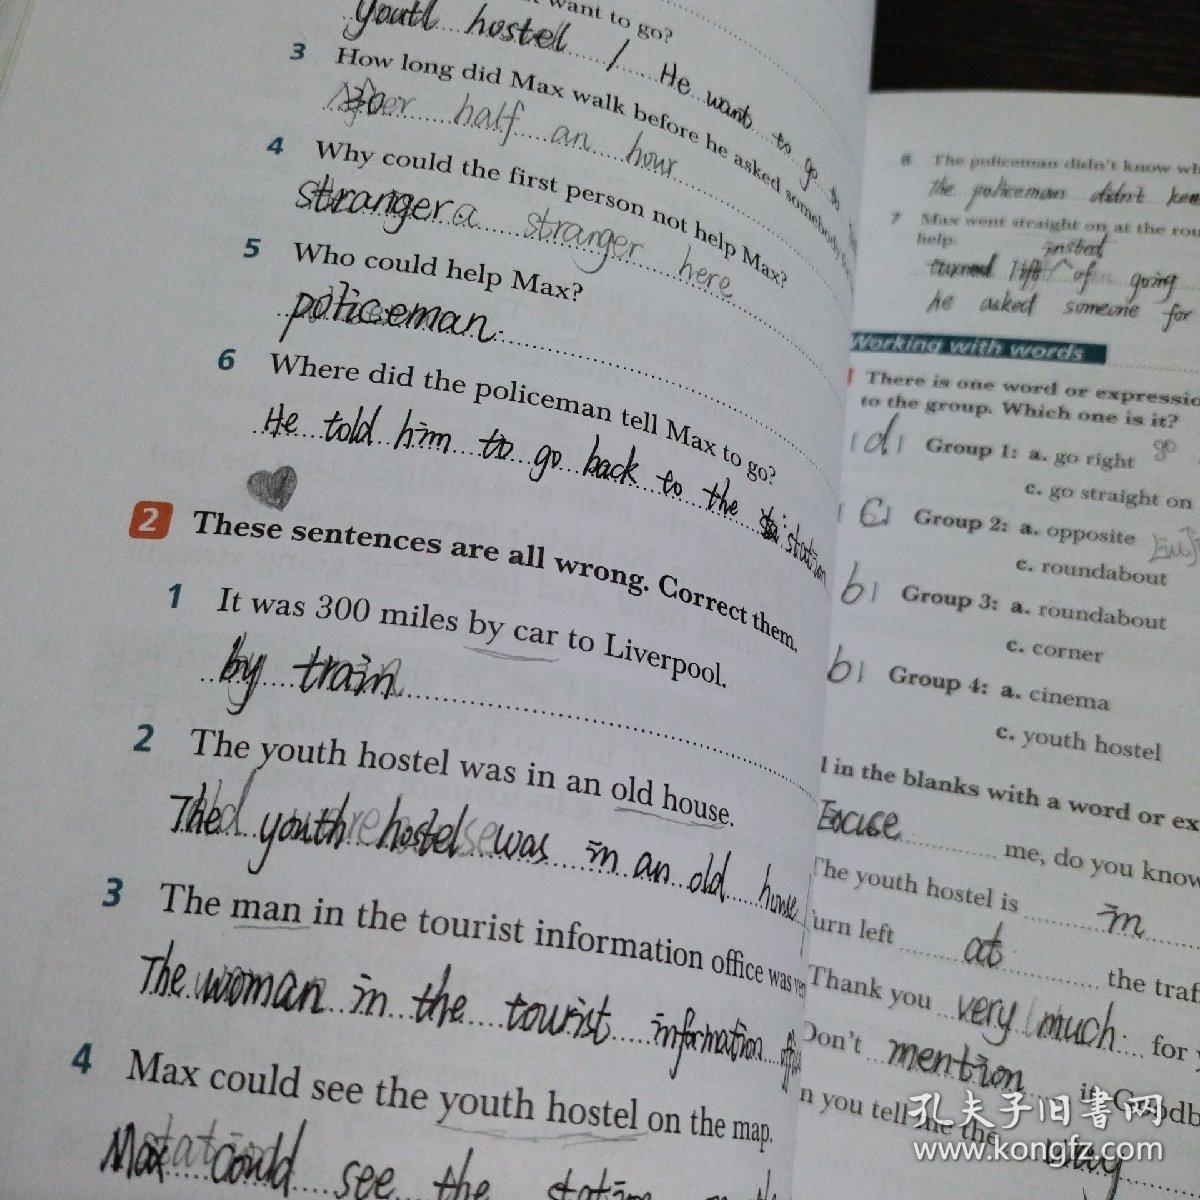 want to go?
youtl hostel / He want to go to
3 How long did Max walk before he asked somebody
half an hour
4 Why could the first person not help Max?
stranger a stranger here
5 Who could help Max?
policeman
6 Where did the policeman tell Max to go?
He told him to go back to the station
2 These sentences are all wrong. Correct them.
1 It was 300 miles by car to Liverpool.
by train
2 The youth hostel was in an old house.
The youth hostel was in an old house
3 The man in the tourist information office was very
The woman in the tourist information office
4 Max could see the youth hostel on the map.
Max could see the station
6 The policeman didn't know
the policeman didn't
7 Max went straight on at the
help.
insted
turned of going
he asked someone for
Working with words
There is one word or expression
to the group. Which one is it?
d Group 1: a. go right go
c. go straight on
c Group 2: a. opposite
c. roundabout
b Group 3: a. roundabout
c. corner
b Group 4: a. cinema
c. youth hostel
in the blanks with a word or
Excuse me, do you know
The youth hostel is in
Turn left at the
Thank you very much for
Don't mention it. Goodb
n you tell me the way
孔夫子旧书网
www.kongfz.com